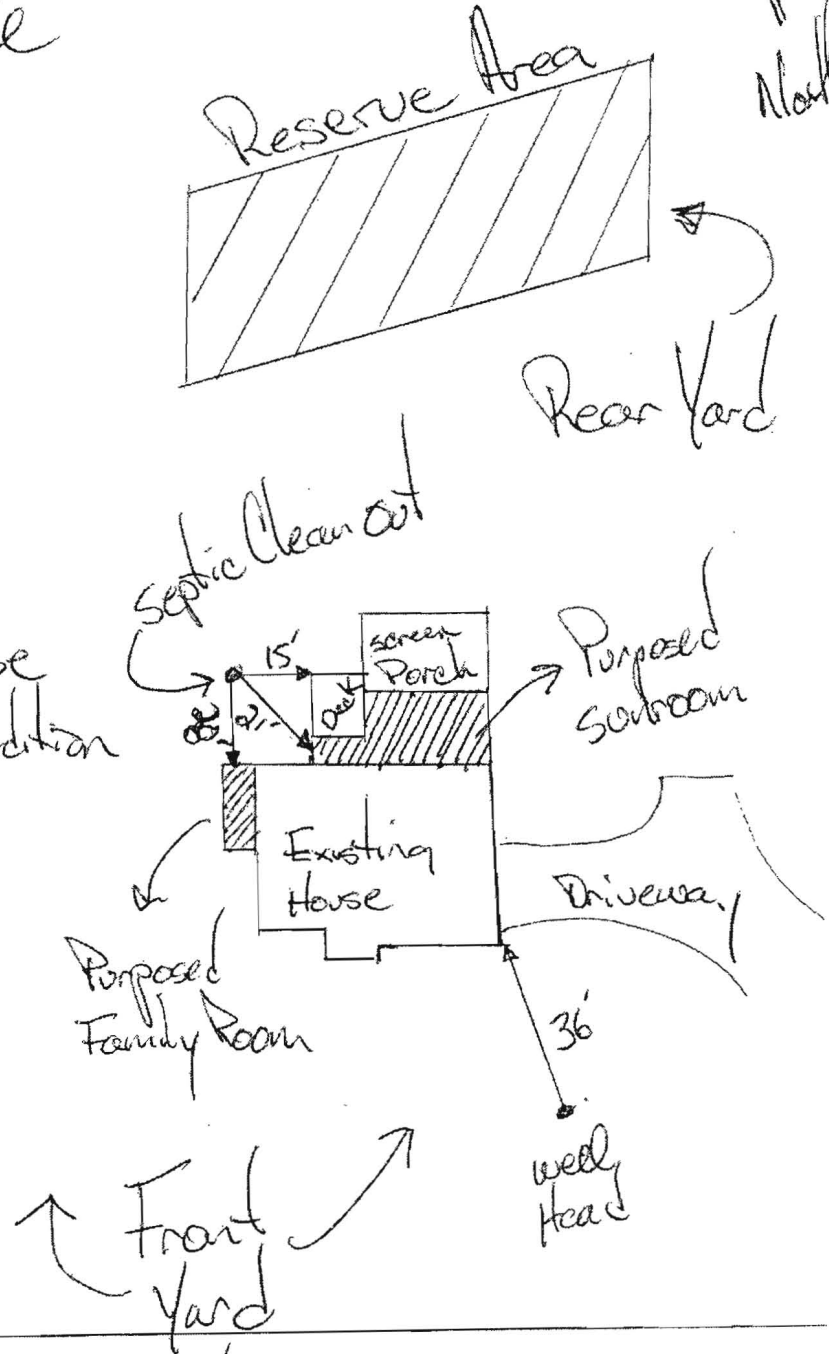 Reserve Area
Rear Yard
Septic Clean Out
15'
screen
Porch
Deck
Purposed
Sunroom
Existing
House
Driveway
Purposed
Family Room
36'
well
Head
Front
Yard